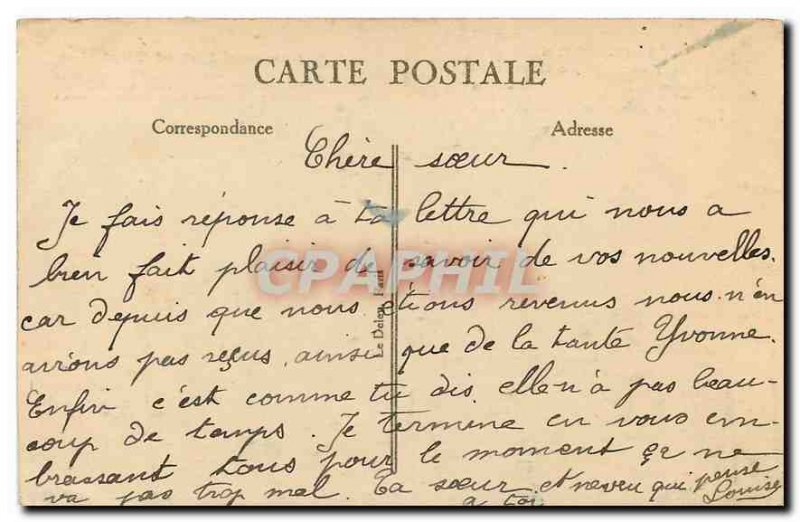 CARTE POSTALE
Correspondance
Adresse
Chère sœur.
Je fais réponse à ta lettre qui nous a
bien fait plaisir de savoir de vos nouvelles.
car depuis que nous étions revenus nous n'en
avions pas reçus, ainsi que de la tante Yvonne.
Enfin c'est comme tu dis elle n'a pas beau-
coup de temps. Je termine en vous em-
brassant tous pour le moment ça ne
va pas trop mal. Ta sœur et neveu qui pense
à toi Louise
CPAPHIL
Le Deley, Paris